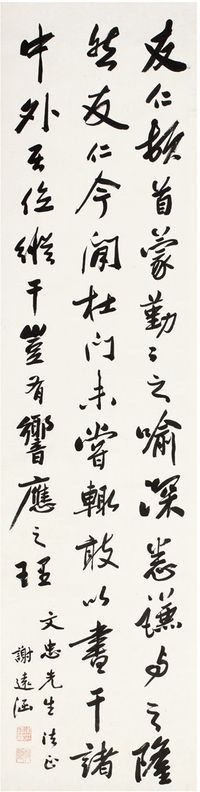 友仁頓首蒙勤〻之喻深悉謙与之隆
然友仁今閒杜门未嘗輒敢以書干諸
中外居位縱干豈有響應之理
文忠先生法正
謝遠涵